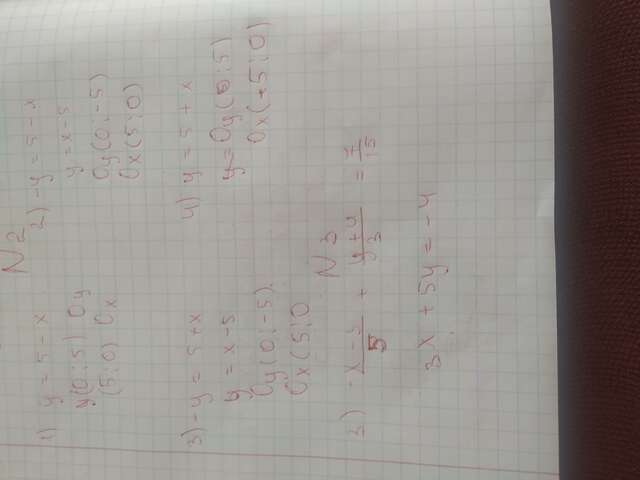 N2
1) y = 5 - x
y(0;5) Oy
(5;0) Ox
2) -y = 5 - x
y = x - 5
Oy(0;-5)
Ox(5;0)
3) -y = 5 + x
y = x - 5
Oy(0;-5)
Ox(5;0
4) y = 5 + x
y= Oy(0;5)
Ox(-5;0)
N3
3) x-3/5 + y+4/3 = 7/15
3x + 5y = -4